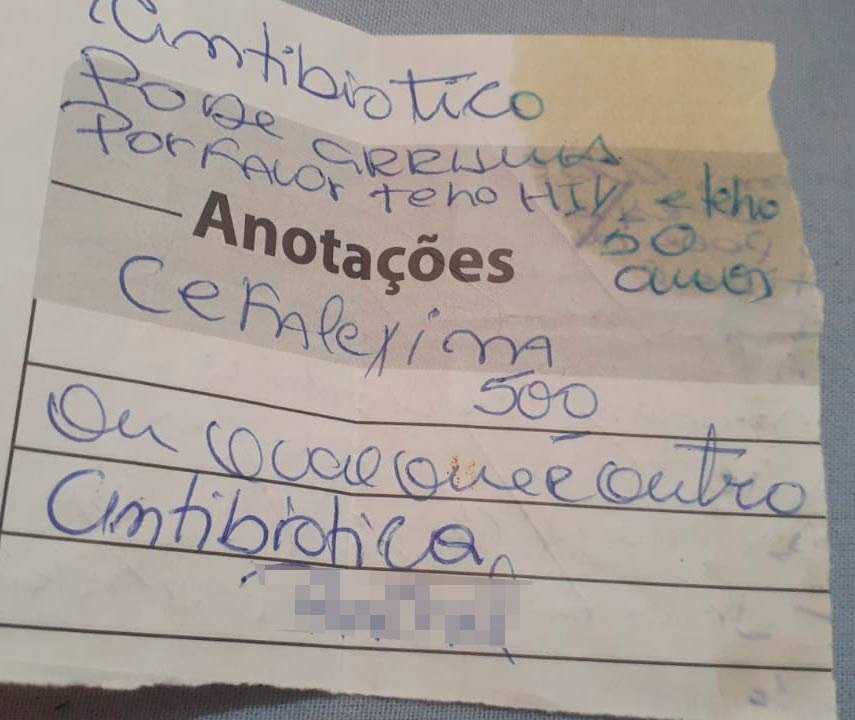 Antibiotico
Pode
ARRUMA
Por FAVor teho HIV, e teho
50
anos
Anotações
CeFAlexinA
500
Ou qualquer outro
Antibiotico,